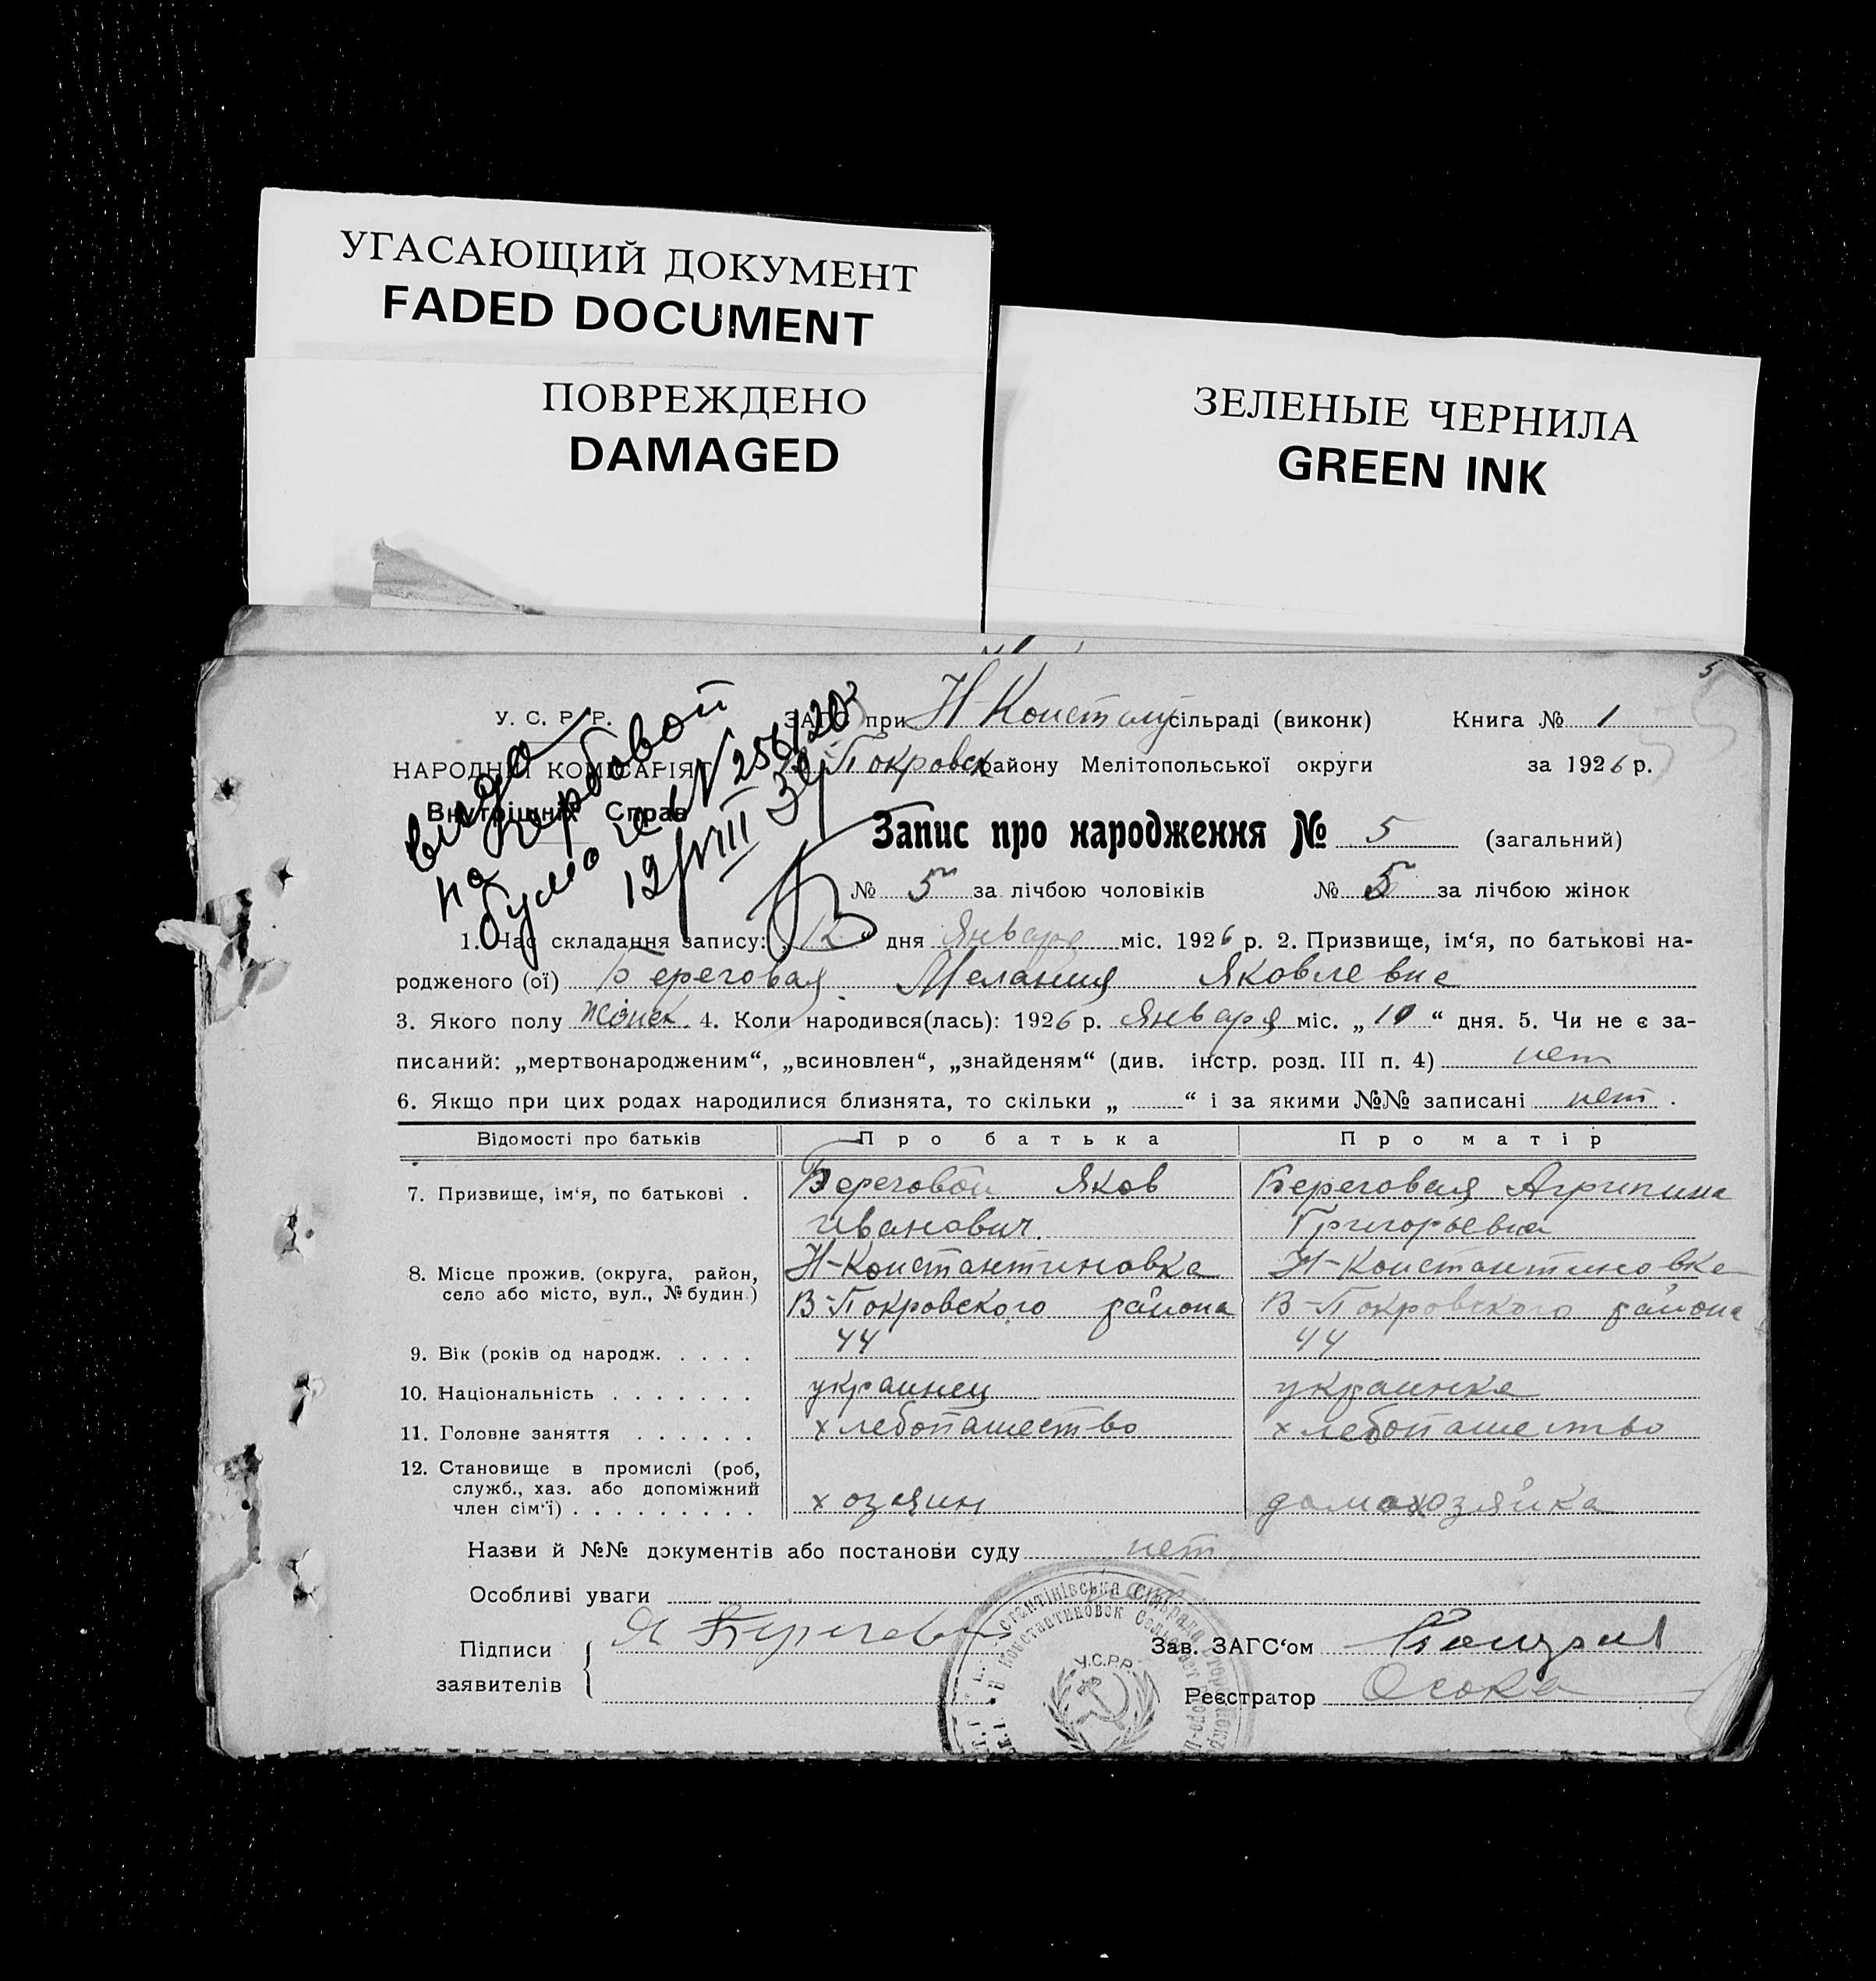 УГАСАЮЩИЙ ДОКУМЕНТ
FADED DOCUMENT
ПОВРЕЖДЕНО
DAMAGED
ЗЕЛЕНЫЕ ЧЕРНИЛА
GREEN INK
5
У. С. Р. Р.
НАРОДНІЙ КОМІСАРІЯТ
Внутрішніх Справ
на
12/VIII
ЗАГС при Н-Констант сільраді (виконк) Книга № 1
Покровск району Мелітопольської округи за 1926 р.
Запис про народження № 5 (загальний)
№ 5 за лічбою чоловіків № 5 за лічбою жінок
1. Час складання запису: „12“ дня Января міс. 1926 р. 2. Призвище, ім‘я, по батькові на-
родженого (ої) Береговая Мелания Яковлевна
3. Якого полу женск. 4. Коли народився(лась): 1926 р. Января міс. „10“ дня. 5. Чи не є за-
писаний: „мертвонародженим“, „всиновлен“, „знайденям“ (див. інстр. розд. III п. 4) нет
6. Якщо при цих родах народилися близнята, то скільки „ “ і за якими №№ записані нет.
Відомості про батьків Про батька Про матір
7. Призвище, ім‘я, по батькові . Береговой Яков Береговая Агрипина
Иванович. Григорьевна
8. Місце прожив. (округа, район, Н-Константиновка Н-Константиновка
село або місто, вул., № будин.) В-Покровского района В-Покровского района
9. Вік (років од народж. . . . . 44 44
10. Національність . . . . . . . украинец украинка
11. Головне заняття . . . . . . хлебопашество хлебопашество
12. Становище в промислі (роб,
служб., хаз. або допоміжний
член сім‘ї) . . . . . . . . . хозяин домохозяйка
Назви й №№ документів або постанови суду нет
Особливі уваги
Підписи Я Береговой Зав. ЗАГС‘ом
заявителів Реєстратор Осока
У.С.Р.Р.